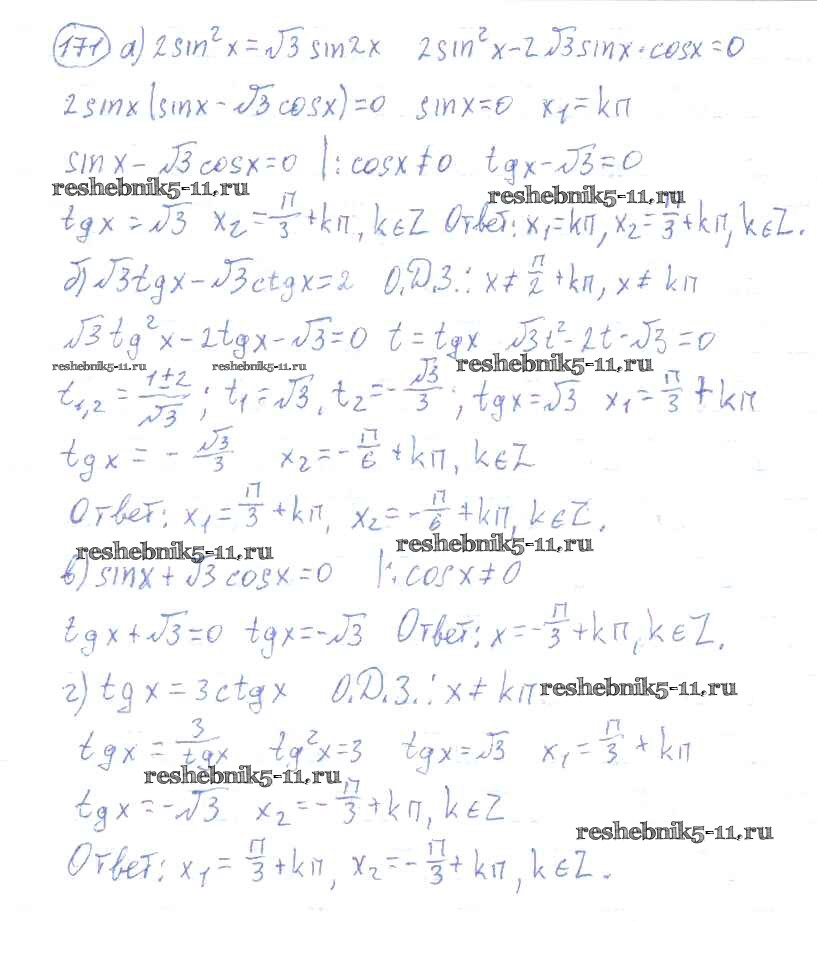 171 а) 2sin²x=√3 sin2x 2sin²x-2√3sinx·cosx=0
2sinx(sinx-√3cosx)=0 sinx=0 x₁=kπ
sinx-√3cosx=0 |:cosx≠0 tgx-√3=0
reshebnik5-11.ru reshebnik5-11.ru
tgx=√3 x₂=π/3+kπ, k∈Z Ответ: x₁=kπ, x₂=π/3+kπ, k∈Z.
б) √3tgx-√3ctgx=2 О.Д.З.: x≠π/2+kπ, x≠kπ
√3tg²x-2tgx-√3=0 t=tgx √3t²-2t-√3=0
reshebnik5-11.ru reshebnik5-11.ru reshebnik5-11.ru
t₁,₂=1±2/√3; t₁=√3, t₂=-√3/3; tgx=√3 x₁=π/3+kπ
tgx=-√3/3 x₂=-π/6+kπ, k∈Z
Ответ: x₁=π/3+kπ, x₂=-π/6+kπ, k∈Z.
reshebnik5-11.ru reshebnik5-11.ru
в) sinx+√3cosx=0 |:cosx≠0
tgx+√3=0 tgx=-√3 Ответ: x=-π/3+kπ, k∈Z.
г) tgx=3ctgx О.Д.З.: x≠kπ reshebnik5-11.ru
tgx=3/tgx tg²x=3 tgx=√3 x₁=π/3+kπ
reshebnik5-11.ru
tgx=-√3 x₂=-π/3+kπ, k∈Z
reshebnik5-11.ru
Ответ: x₁=π/3+kπ, x₂=-π/3+kπ, k∈Z.